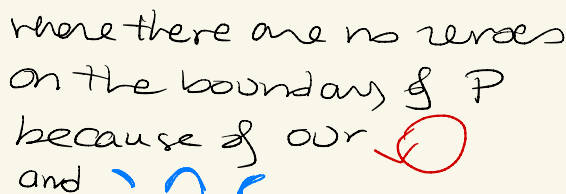 where there are no zeroes
on the boundary of P
because of our
and